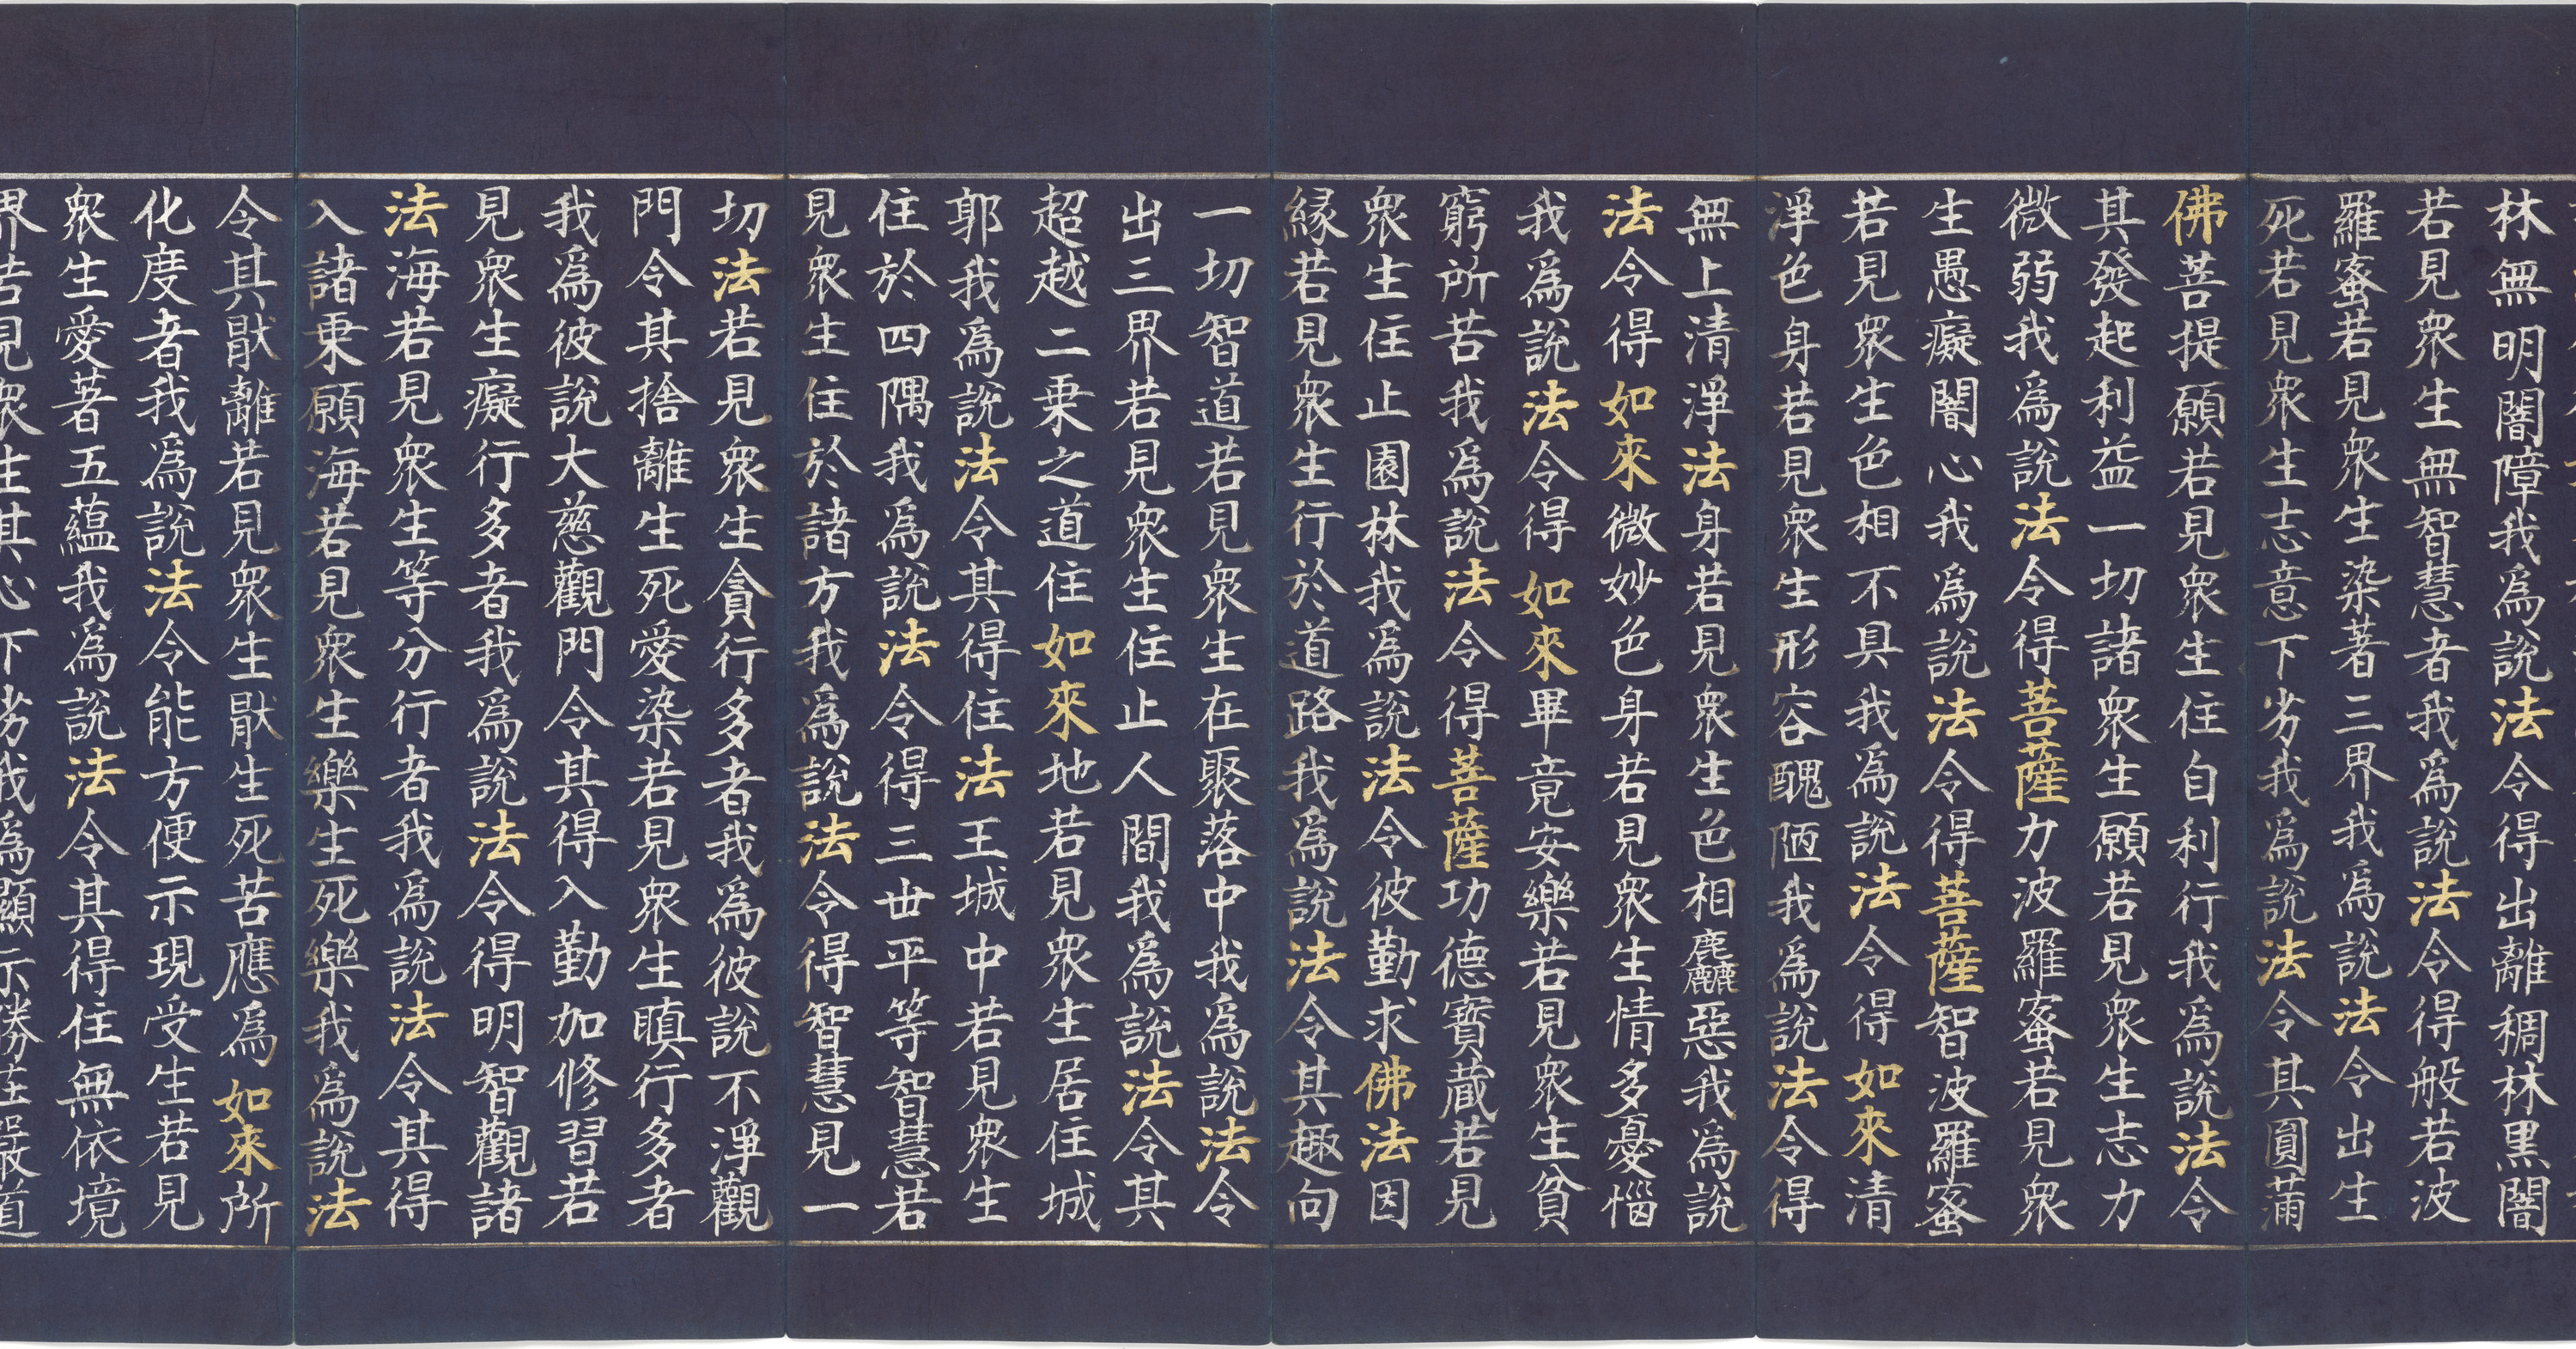 林無明闇障我爲說法令得出離稠林黒闇
若見衆生無智慧者我爲說法令得般若波
羅蜜若見衆生染著三界我爲說法令出生
死若見衆生志意下劣我爲說法令其圓蒲
佛菩提願若見衆生住自利行我爲說法令
其發起利益一切諸衆生願若見衆生志力
微弱我爲說法令得菩薩力波羅蜜若見衆
生愚癡闇心我爲說法令得菩薩智波羅蜜
若見衆生色相不具我爲說法令得如來清
淨色身若見衆生形容醜陋我爲說法令得
無上清淨法身若見衆生色相麁麤惡我爲說
法令得如來微妙色身若見衆生情多憂惱
我爲說法令得如來畢竟安樂若見衆生貧
窮所苦我爲說法令得菩薩功德寶藏若見
衆生住止園林我爲說法令彼勤求佛法因
縁若見衆生行於道路我爲說法令其趣向
一切智道若見衆生在聚落中我爲說法令
出三界若見衆生住止人間我爲說法令其
超越二乗之道住如來地若見衆生居住城
郭我爲說法令其得住法王城中若見衆生
住於四隅我爲說法令得三世平等智慧若
見衆生住於諸方我爲說法令得智慧見一
切法若見衆生貪行多者我爲彼說不淨觀
門令其捨離生死愛染若見衆生瞋行多者
我爲彼說大慈觀門令其得入勤加修習若
見衆生癡行多者我爲說法令得明智觀諸
法海若見衆生等分行者我爲說法令其得
入諸乗願海若見衆生樂生死樂我爲說法
令其猒離若見衆生猒生死苦應爲如來所
化度者我爲說法令能方便示現受生若見
衆生愛著五蘊我爲說法令其得住無依境
界若見衆生其心下劣我爲顯示勝莊嚴道